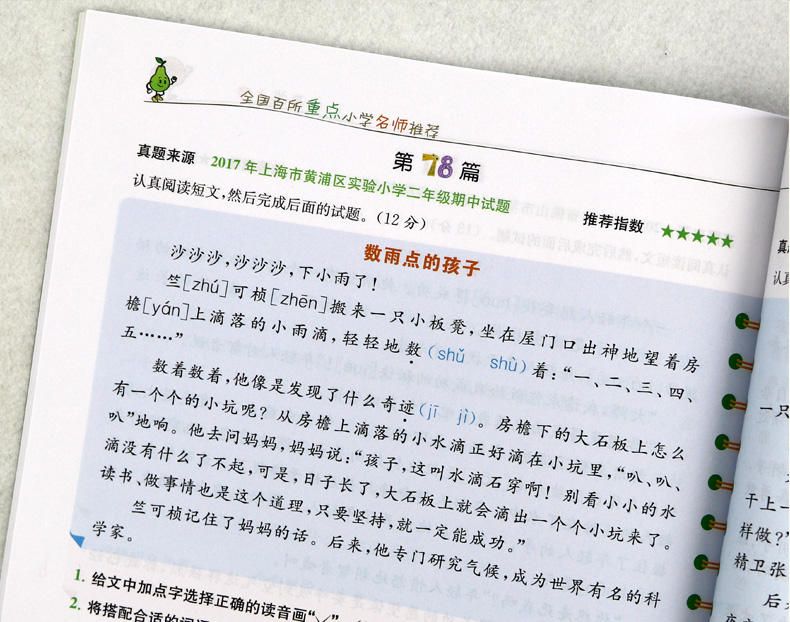 全国百所重点小学名师推荐
第78篇
真题来源 2017年上海市黄浦区实验小学二年级期中试题 推荐指数 ★★★★★
认真阅读短文,然后完成后面的试题。(12分)
数雨点的孩子
沙沙沙,沙沙沙,下小雨了!
竺[zhú]可桢[zhēn]搬来一只小板凳,坐在屋门口出神地望着房
檐[yán]上滴落的小雨滴,轻轻地数(shǔ shù)着:“一、二、三、四、
五……”
数着数着,他像是发现了什么奇迹(jī jì)。房檐下的大石板上怎么
有一个个的小坑呢?从房檐上滴落的小水滴正好滴在小坑里,“叭、叭、
叭”地响。他去问妈妈,妈妈说:“孩子,这叫水滴石穿啊!别看小小的水
滴没有什么了不起,可是,日子长了,大石板上就会滴出一个个小坑来了。
读书、做事情也是这个道理,只要坚持,就一定能成功。”
竺可桢记住了妈妈的话。后来,他专门研究气候,成为世界有名的科
学家。
1. 给文中加点字选择正确的读音画“√”
2. 将搭配合适的词语
认真
一只
干上一
样做?”
精卫张
后